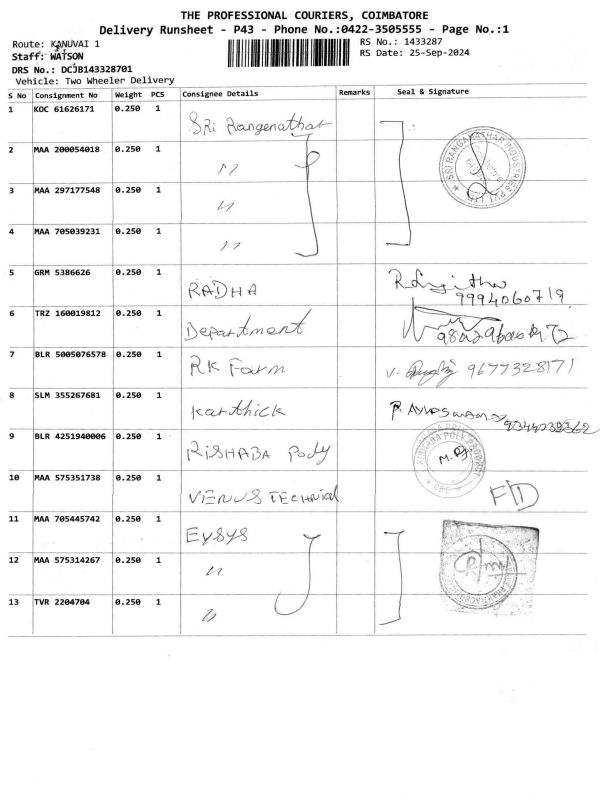 THE PROFESSIONAL COURIERS, COIMBATORE
Delivery Runsheet - P43 - Phone No.:0422-3505555 - Page No.:1
Route: KANUVAI 1
RS No.: 1433287
Staff: WATSON
RS Date: 25-Sep-2024
DRS No.: DCJB143328701
Vehicle: Two Wheeler Delivery
S No Consignment No Weight PCS Consignee Details Remarks Seal & Signature
1 KOC 61626171 0.250 1 Sri Rangenathar
2 MAA 200054018 0.250 1 〃
3 MAA 297177548 0.250 1 〃
4 MAA 705039231 0.250 1 〃
SRI RANGANATHAR INDUSTRIES PVT LTD
5 GRM 5386626 0.250 1 RADHA
9994060719
6 TRZ 160019812 0.250 1 Department
7 BLR 5005076578 0.250 1 RK Farm V. 9677328171
8 SLM 355267681 0.250 1 Karthick
9 BLR 4251940006 0.250 1 RISHABA Poly
10 MAA 575351738 0.250 1 VENUS TECHNICAL FD
11 MAA 705445742 0.250 1 EVSYS
12 MAA 575314267 0.250 1 〃
13 TVR 2204704 0.250 1 〃